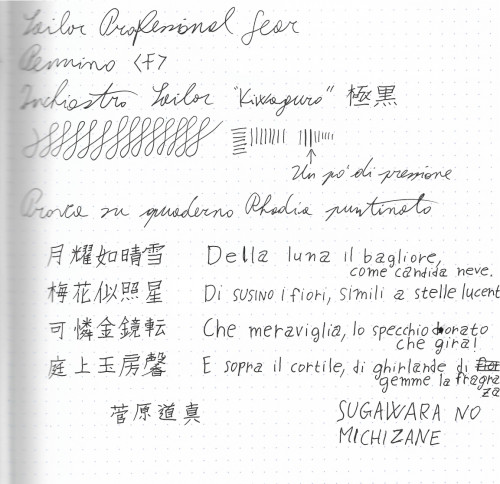 Sailor Professional Gear
Pennino <F>
Inchiostro Sailor "Kiwaguro" 極黒
Un po' di pressione
Prova su quaderno Rhodia puntinato
月耀如晴雪 Della luna il bagliore,
come candida neve.
梅花似照星 Di susino i fiori, simili a stelle lucent
可憐金鏡転 Che meraviglia, lo specchio dorato
che gira!
庭上玉房馨 E sopra il cortile, di ghirlande di
gemme la fragra
za
菅原道真 SUGAWARA NO
MICHIZANE